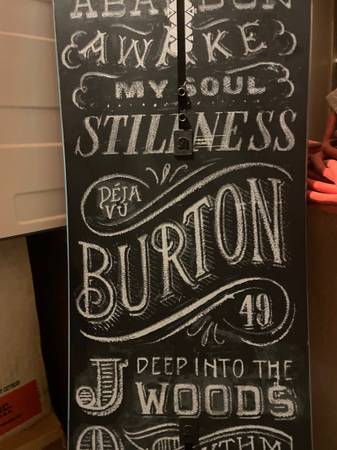 ABANDON
AWAKE
MY SOUL
STILLNESS
DÉJÀ
VU
BURTON
49
DEEP INTO THE
WOODS
RHYTHM